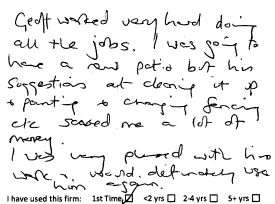 Geoff worked very hard doing
all the jobs. I was going to
have a new patio but his
suggestions at cleaning it up
+ painting + changing fencing
etc saved me a lot of
money.
I was very pleased with his
work + would definately use
him again.
I have used this firm: 1st Time ☑ <2 yrs ☐ 2-4 yrs ☐ 5+ yrs ☐